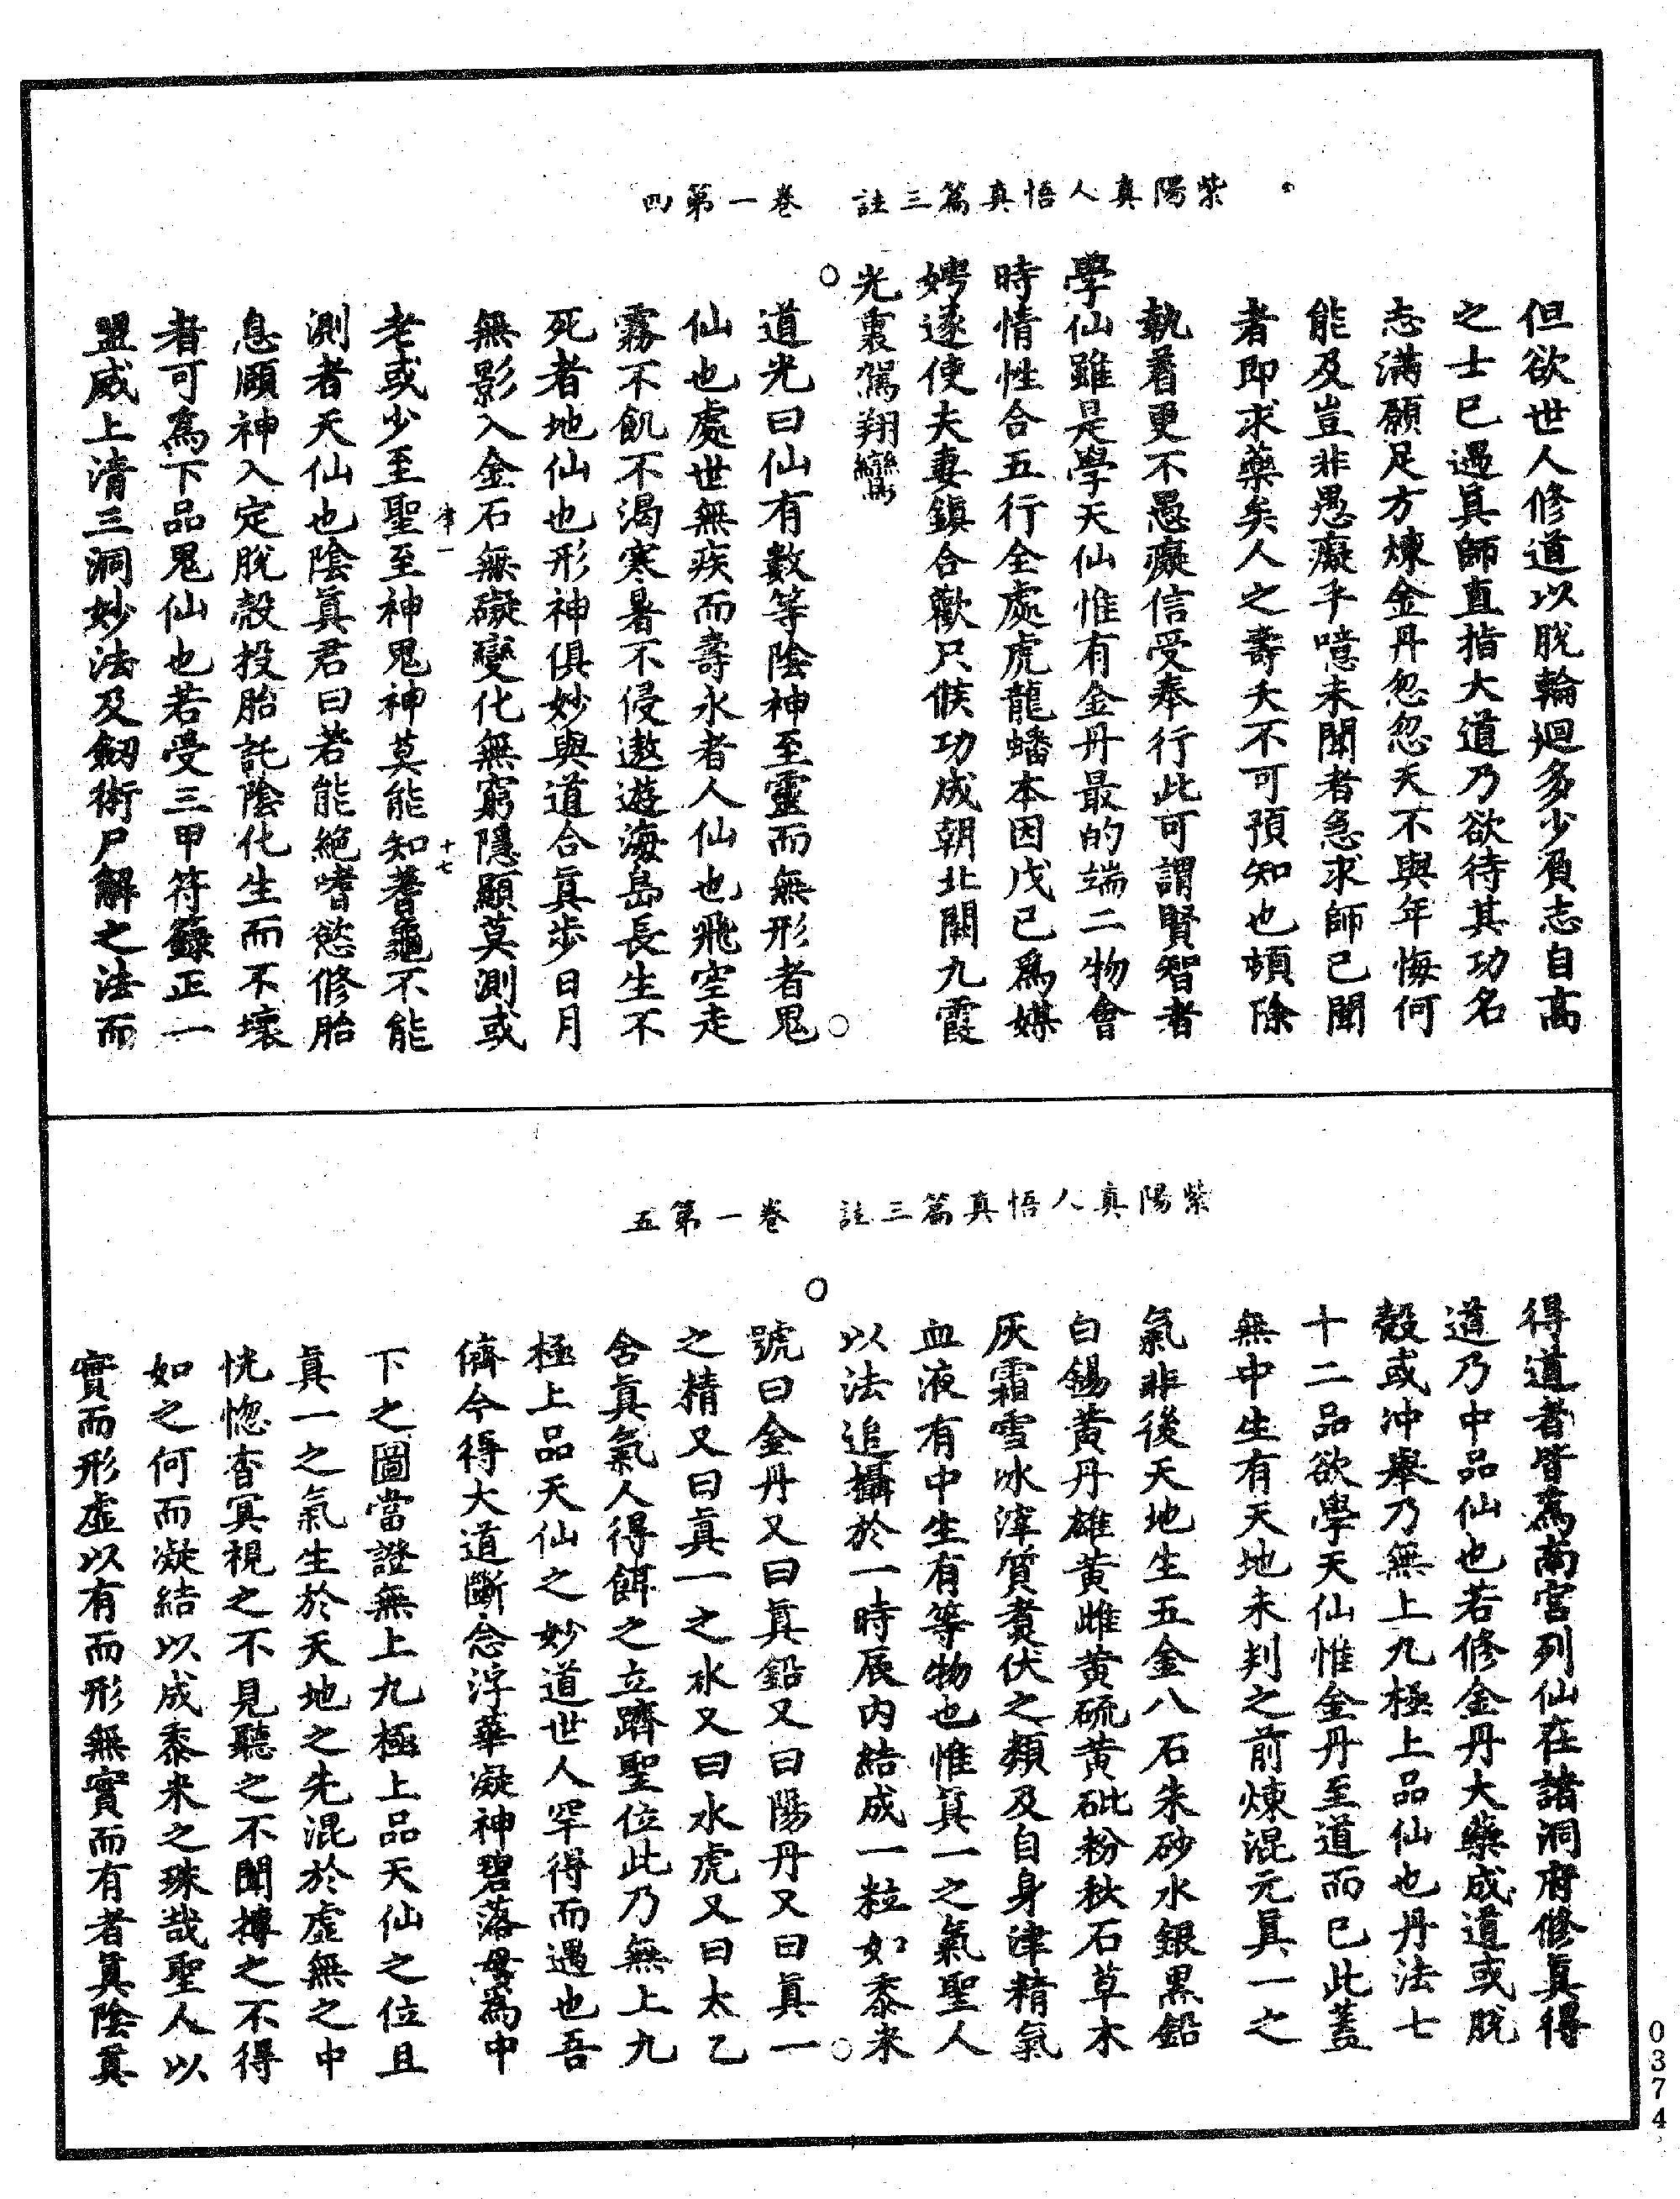 紫陽真人悟真篇三註　卷一第四
但欲世人修道以脫輪迴多少負志自高
之士已遇真師直指大道乃欲待其功名
志滿願足方煉金丹忽忽天不與年悔何
能及豈非愚癡乎噫未聞者急求師已聞
者即求藥矣人之壽夭不可預知也頓除
執着更不愚癡信受奉行此可謂賢智者
學仙雖是學天仙惟有金丹最的端二物會
時情性合五行全處虎龍蟠本因戊已為媒
娉遂使夫妻鎮合歡只候功成朝北闕九霞
光裏駕翔鸞
道光曰仙有數等陰神至靈而無形者鬼
仙也處世無疾而壽永者人仙也飛空走
霧不飢不渴寒暑不侵遨遊海島長生不
死者地仙也形神俱妙與道合真步日月
無影入金石無礙變化無窮隱顯莫測或
律一　十七
老或少至聖至神鬼神莫能知蓍龜不能
測者天仙也陰真君曰若能絕嗜慾修胎
息頤神入定脫殼投胎託陰化生而不壞
者可為下品鬼仙也若受三甲符籙正一
盟威上清三洞妙法及劒術尸解之法而
紫陽真人悟真篇三註　卷一第五
得道者皆為南宮列仙在諸洞府修真得
道乃中品仙也若修金丹大藥成道或脫
殼或沖舉乃無上九極上品仙也丹法七
十二品欲學天仙惟金丹至道而已此蓋
無中生有天地未判之前煉混元真一之
氣非後天地生五金八石朱砂水銀黑鉛
白錫黃丹雄黃雌黃硫黃砒粉秋石草木
灰霜雪冰滓質煑伏之類及自身津精氣
血液有中生有等物也惟真一之氣聖人
以法追攝於一時辰內結成一粒如黍米
號曰金丹又曰真鉛又曰陽丹又曰真一
之精又曰真一之水又曰水虎又曰太乙
含真氣人得餌之立躋聖位此乃無上九
極上品天仙之妙道世人罕得而遇也吾
儕今得大道斷念浮華凝神碧落毋為中
下之圖當證無上九極上品天仙之位且
真一之氣生於天地之先混於虛無之中
恍惚杳冥視之不見聽之不聞搏之不得
如之何而凝結以成黍米之珠哉聖人以
實而形虛以有而形無實而有者真陰真
0374